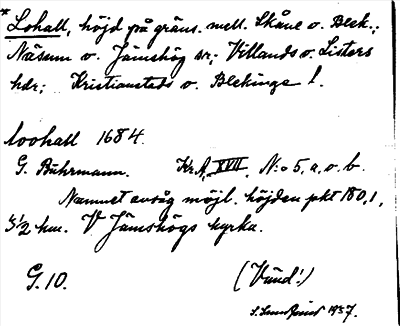 * Lohall, höjd på gräns. mell. Skåne o. Blek.;
Näsum o. Jämshög sr; Villands o. Listers
hdr; Kristianstads o. Blekinge l.
loohall 1684.
G. Buhrmann. Kr.A, XVII, N:o 5, a, o. b.
Namnet avsåg möjl. höjden pkt 180,1,
5 1/2 km. V Jämshögs kyrka.
G. 10. (Vänd!)
1937.